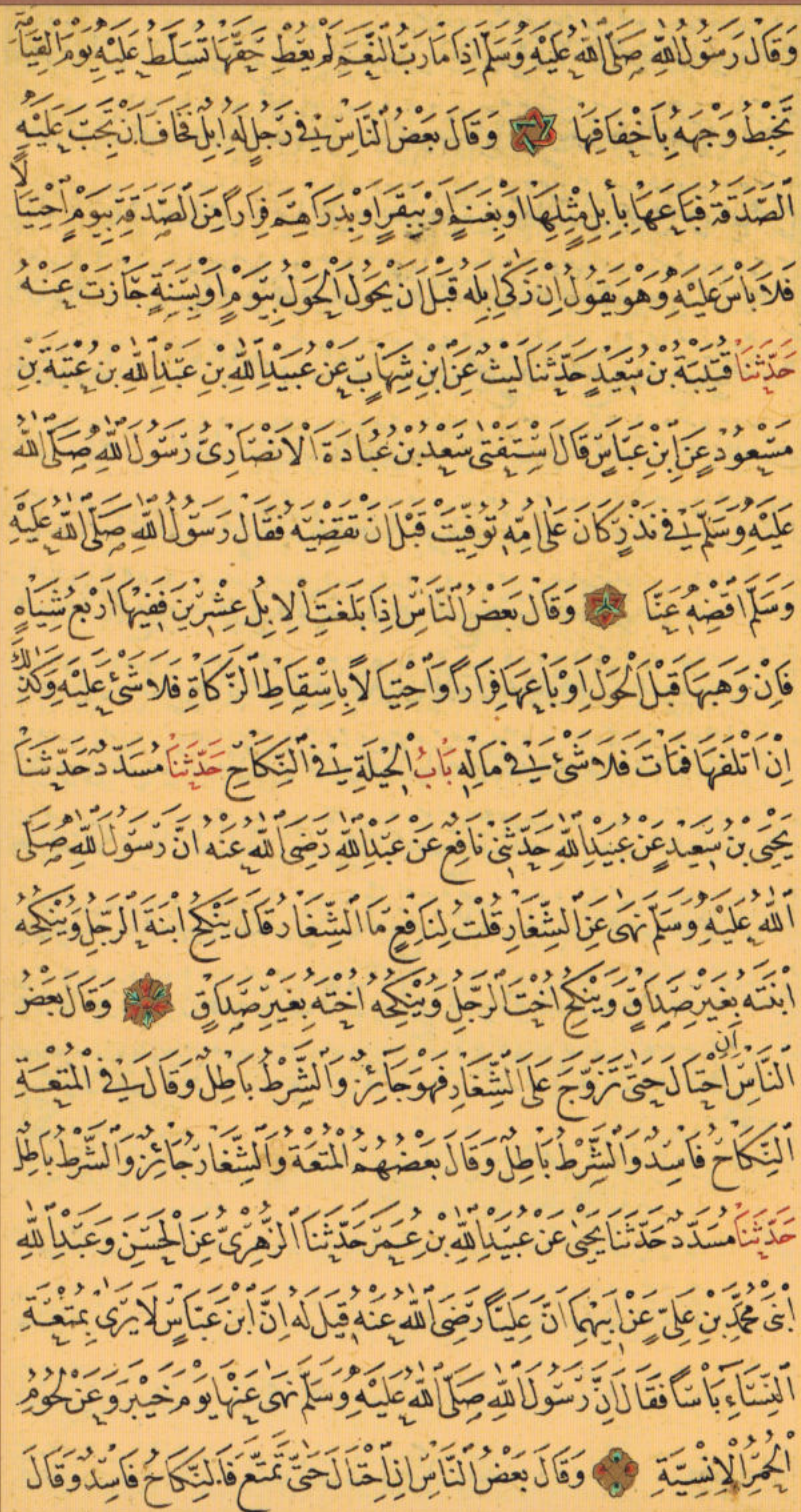 وَقَالَ رَسُولُ اللهِ صَلَّى اللهُ عَلَيْهِ وَسَلَّمَ اِذَا مَا رَبُّ النَّعَمِ لَمْ يُعْطِ حَقَّهَا تُسَلَّطُ عَلَيْهِ يَوْمَ الْقِيَامَةِ
تَخْبِطُ وَجْهَهُ بِاَخْفَافِهَا وَقَالَ بَعْضُ النَّاسِ فِي رَجُلٍ لَهُ اِبِلٌ فَخَافَ اَنْ تَجِبَ عَلَيْهِ
الصَّدَقَةُ فَبَاعَهَا بِاِبِلٍ مِثْلِهَا اَوْ بِغَنَمٍ اَوْ بِبَقَرٍ اَوْ بِدَرَاهِمَ فِرَارًا مِنَ الصَّدَقَةِ بِيَوْمٍ احْتِيَالًا
فَلَا بَأْسَ عَلَيْهِ وَهُوَ يَقُولُ اِنْ زَكَّى اِبِلَهُ قَبْلَ اَنْ يَحُولَ الْحَوْلُ بِيَوْمٍ اَوْ بِسَنَةٍ جَازَتْ عَنْهُ
حَدَّثَنَا قُتَيْبَةُ بْنُ سَعِيدٍ حَدَّثَنَا لَيْثٌ عَنِ ابْنِ شِهَابٍ عَنْ عُبَيْدِ اللهِ بْنِ عَبْدِ اللهِ بْنِ عُتْبَةَ بْنِ
مَسْعُودٍ عَنِ ابْنِ عَبَّاسٍ قَالَ اسْتَفْتَى سَعْدُ بْنُ عُبَادَةَ الْاَنْصَارِيُّ رَسُولَ اللهِ صَلَّى اللهُ
عَلَيْهِ وَسَلَّمَ فِي نَذْرٍ كَانَ عَلَى اُمِّهِ تُوُفِّيَتْ قَبْلَ اَنْ تَقْضِيَهُ فَقَالَ رَسُولُ اللهِ صَلَّى اللهُ عَلَيْهِ
وَسَلَّمَ اقْضِهِ عَنْهَا وَقَالَ بَعْضُ النَّاسِ اِذَا بَلَغَتِ الْاِبِلُ عِشْرِينَ فَفِيهَا اَرْبَعُ شِيَاهٍ
فَاِنْ وَهَبَهَا قَبْلَ الْحَوْلِ اَوْ بَاعَهَا فِرَارًا وَاحْتِيَالًا بِاِسْقَاطِ الزَّكَاةِ فَلَا شَيْءَ عَلَيْهِ وَكَذٰلِكَ
اِنْ اَتْلَفَهَا فَمَاتَ فَلَا شَيْءَ فِي مَالِهِ بَابُ الْحِيلَةِ فِي النِّكَاحِ حَدَّثَنَا مُسَدَّدٌ حَدَّثَنَا
يَحْيَى بْنُ سَعِيدٍ عَنْ عُبَيْدِ اللهِ حَدَّثَنِي نَافِعٌ عَنْ عَبْدِ اللهِ رَضِيَ اللهُ عَنْهُ اَنَّ رَسُولَ اللهِ صَلَّى
اللهُ عَلَيْهِ وَسَلَّمَ نَهَى عَنِ الشِّغَارِ قُلْتُ لِنَافِعٍ مَا الشِّغَارُ قَالَ يَنْكِحُ ابْنَةَ الرَّجُلِ وَيُنْكِحُهُ
ابْنَتَهُ بِغَيْرِ صَدَاقٍ وَيَنْكِحُ اُخْتَ الرَّجُلِ وَيُنْكِحُهُ اُخْتَهُ بِغَيْرِ صَدَاقٍ وَقَالَ بَعْضُ
النَّاسِ اِنِ احْتَالَ حَتَّى تَزَوَّجَ عَلَى الشِّغَارِ فَهُوَ جَائِزٌ وَالشَّرْطُ بَاطِلٌ وَقَالَ فِي الْمُتْعَةِ
النِّكَاحُ فَاسِدٌ وَالشَّرْطُ بَاطِلٌ وَقَالَ بَعْضُهُمُ الْمُتْعَةُ وَالشِّغَارُ جَائِزٌ وَالشَّرْطُ بَاطِلٌ
حَدَّثَنَا مُسَدَّدٌ حَدَّثَنَا يَحْيَى عَنْ عُبَيْدِ اللهِ بْنِ عُمَرَ حَدَّثَنَا الزُّهْرِيُّ عَنِ الْحَسَنِ وَعَبْدِ اللهِ
ابْنَيْ مُحَمَّدِ بْنِ عَلِيٍّ عَنْ اَبِيهِمَا اَنَّ عَلِيًّا رَضِيَ اللهُ عَنْهُ قِيلَ لَهُ اِنَّ ابْنَ عَبَّاسٍ لَا يَرَى بِمُتْعَةِ
النِّسَاءِ بَأْسًا فَقَالَ اِنَّ رَسُولَ اللهِ صَلَّى اللهُ عَلَيْهِ وَسَلَّمَ نَهَى عَنْهَا يَوْمَ خَيْبَرَ وَعَنْ لُحُومِ
الْحُمُرِ الْاِنْسِيَّةِ وَقَالَ بَعْضُ النَّاسِ اِنِ احْتَالَ حَتَّى تَمَتَّعَ فَالنِّكَاحُ فَاسِدٌ وَقَالَ